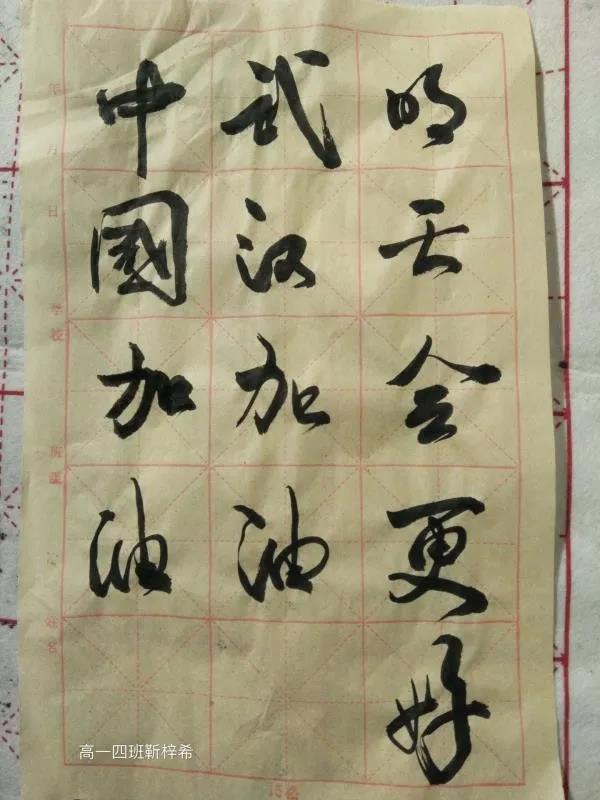 明天会更好
武汉加油
中國加油
月
日
学校
姓名
15格
高一四班靳梓希